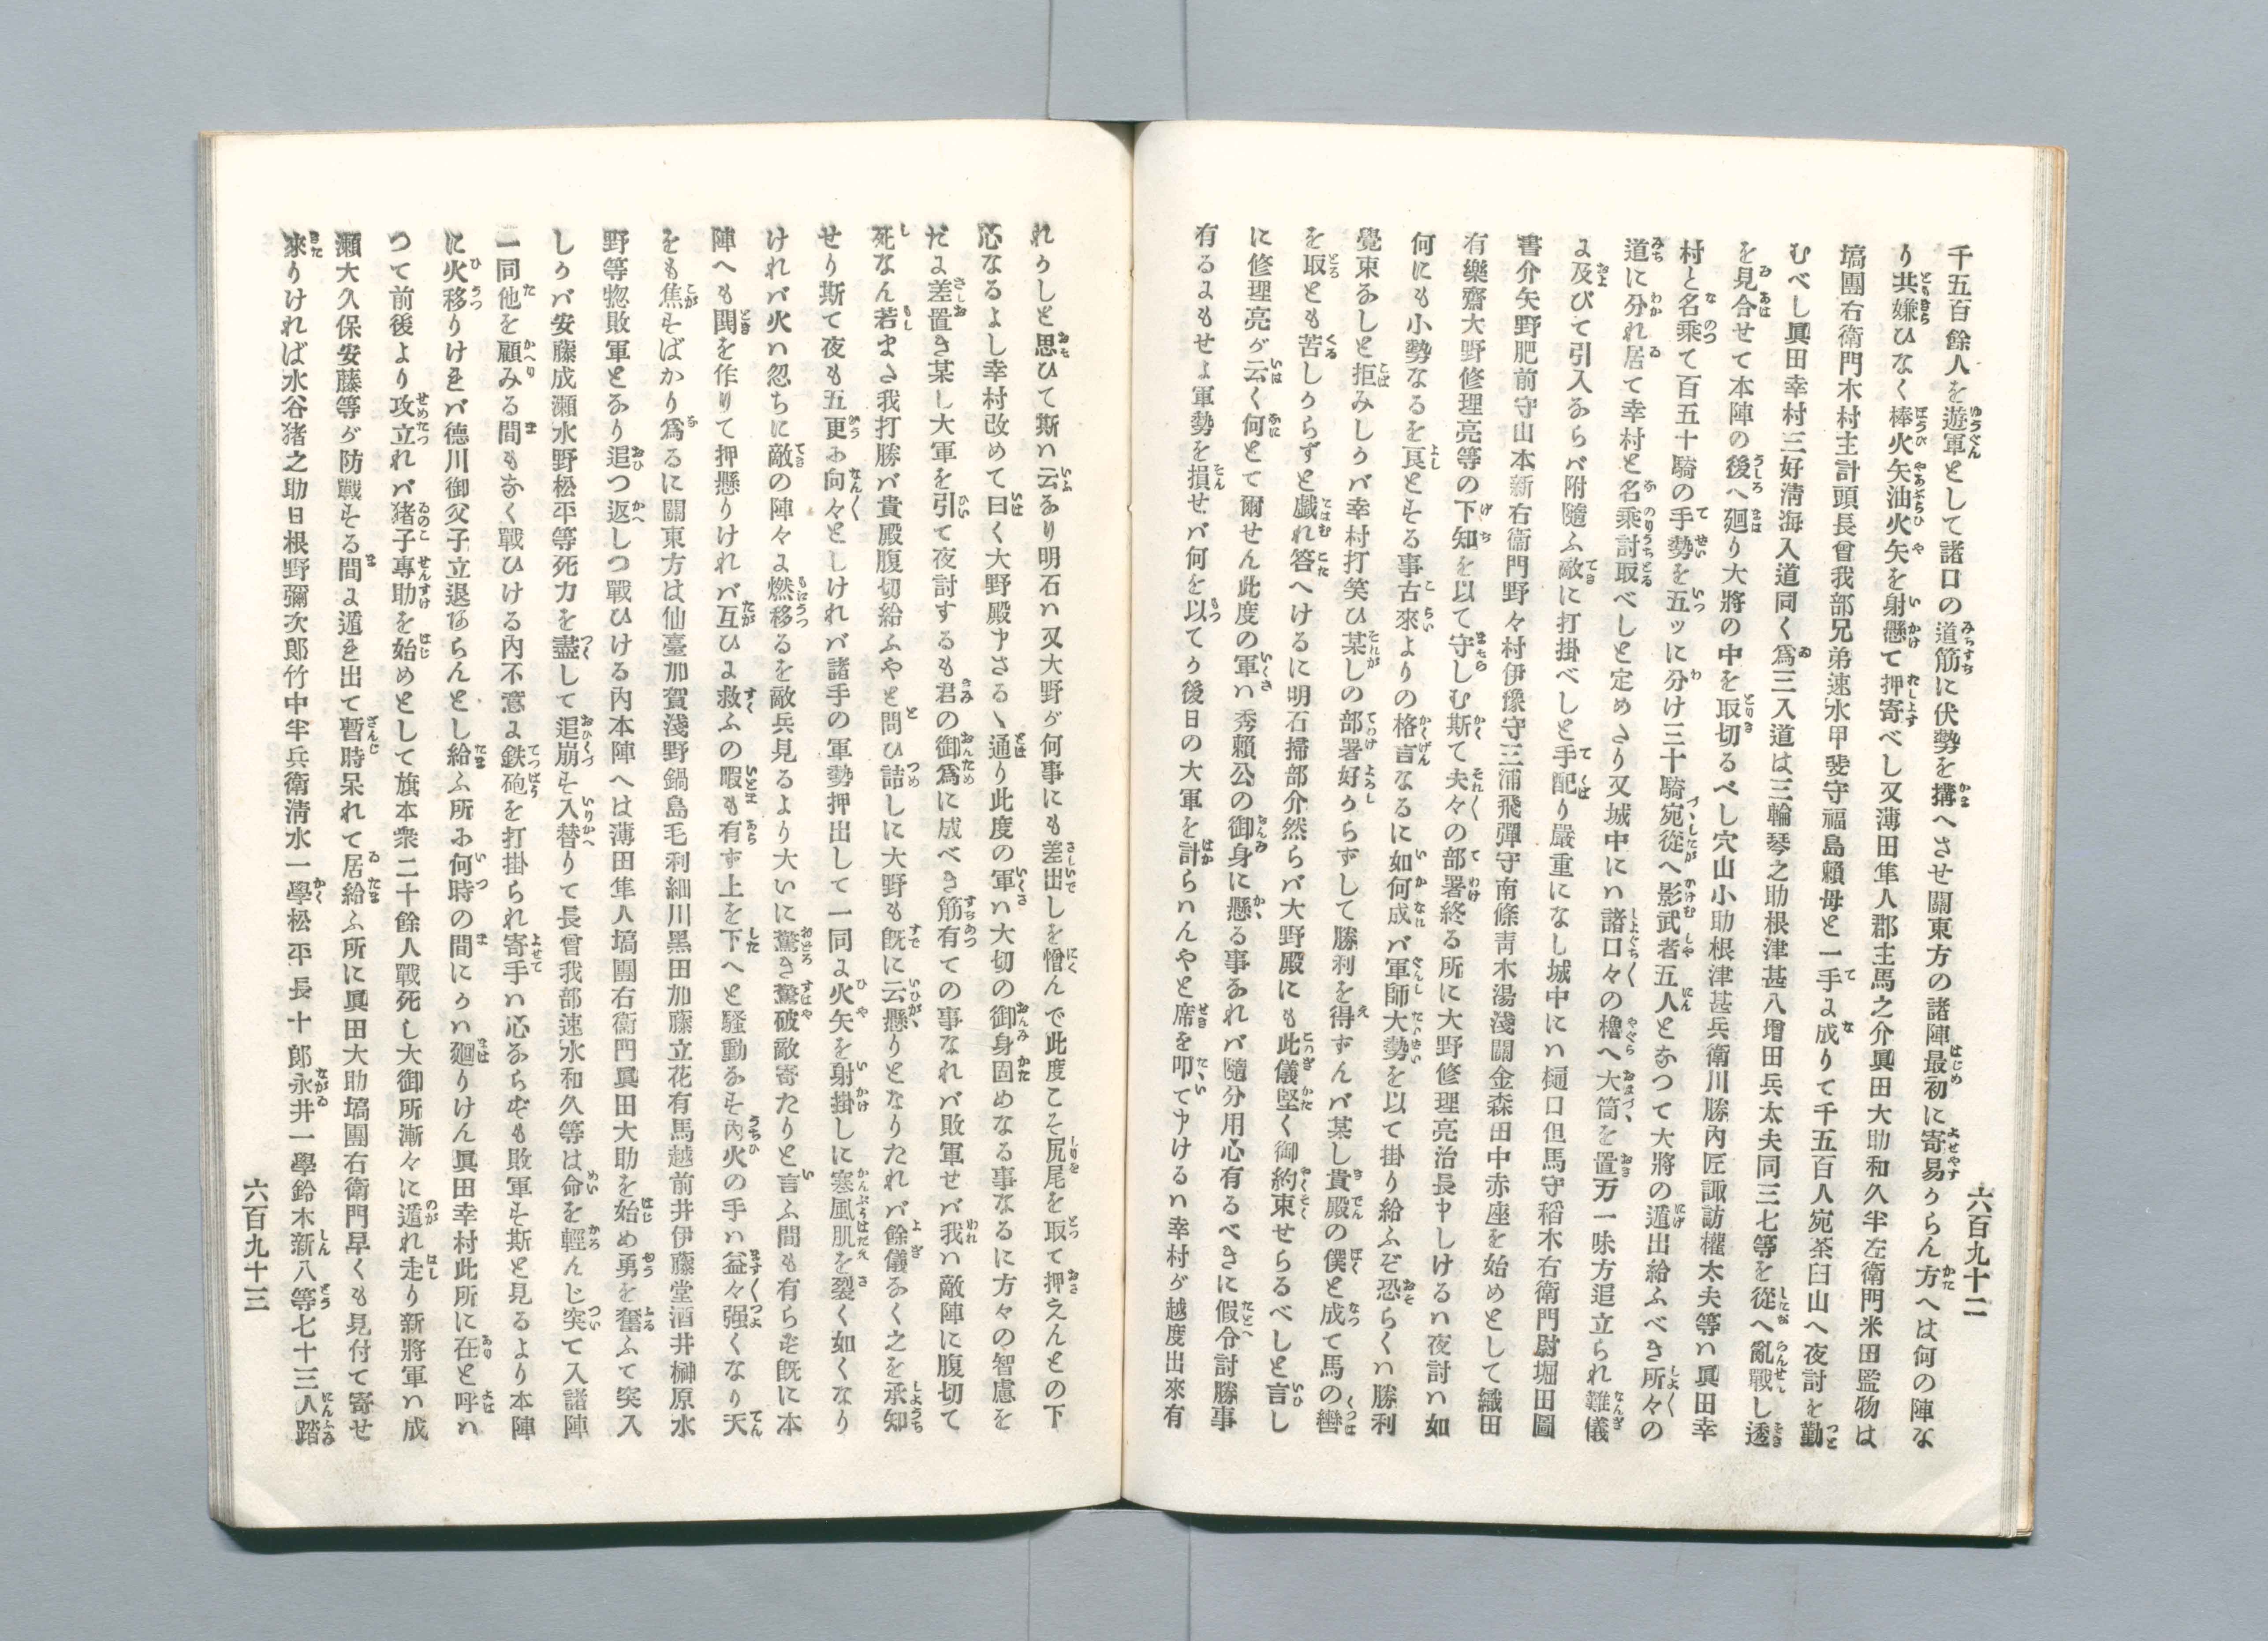 六百九十二
千五百餘人を遊軍として諸口の道筋に伏勢を搆へさせ關東方の諸陣最初に寄易からん方へは何の陣な
り共嫌ひなく棒火矢油火矢を射懸て押寄べし又薄田隼人郡主馬之介眞田大助和久半左衛門米田監物は
塙團右衛門木村主計頭長曾我部兄弟速水甲斐守福島賴母と一手に成りて千五百人宛茶臼山へ夜討を勤
むべし眞田幸村三好淸海入道同く爲三入道は三輪琴之助根津甚八增田兵太夫同三七等を從へ亂戰し透
を見合せて本陣の後へ廻り大將の中を取切るべし穴山小助根津甚兵衛川勝內匠諏訪權太夫等ハ眞田幸
村と名乘て百五十騎の手勢を五ッに分け三十騎宛從へ影武者五人となつて大將の遁出給ふべき所々の
道に分れ居て幸村と名乘討取べしと定めたり又城中にハ諸口々の櫓へ大筒を置万一味方追立られ難儀
に及びて引入るならバ附隨ふ敵に打掛べしと手配り嚴重になし城中にハ樋口但馬守稻木右衛門尉堀田圖
書介矢野肥前守山本新右衛門野々村伊豫守三浦飛彈守南條靑木湯淺關金森田中赤座を始めとして織田
有樂齋大野修理亮等の下知を以て守しむ斯て夫々の部署終る所に大野修理亮治長申しけるハ夜討ハ如
何にも小勢なるを良とする事古來よりの格言なるに如何成バ軍師大勢を以て掛り給ふぞ恐らくハ勝利
覺束なしと拒みしかバ幸村打笑ひ某しの部署好からずして勝利を得ずんバ某し貴殿の僕と成て馬の轡
を取とも苦しからずと戯れ答へけるに明石掃部介然らバ大野殿にも此儀堅く御約束せらるべしと言し
に修理亮が云く何とて爾せん此度の軍ハ秀賴公の御身に懸る事なれバ隨分用心有るべきに假令討勝事
有るにもせよ軍勢を損せバ何を以てか後日の大軍を計らハんやと席を叩て申けるハ幸村が越度出來有
れかしと思ひて斯ハ云なり明石ハ又大野が何事にも差出しを憎んで此度こそ尻尾を取て押えんとの下
心なるよし幸村改めて曰く大野殿申さるゝ通り此度の軍ハ大切の御身固めなる事なるに方々の智慮を
だに差置き某し大軍を引て夜討するも君の御爲に成べき筋有ての事なれバ敗軍せバ我ハ敵陣に腹切て
死なん若また我打勝バ貴殿腹切給ふやと問ひ詰しに大野も旣に云懸りとなりたれバ餘儀なく之を承知
せり斯て夜も五更に向々としけれバ諸手の軍勢押出して一同に火矢を射掛しに寒風肌を裂く如くなり
けれバ火ハ忽ちに敵の陣々に燃移るを敵兵見るより大いに驚き驚破敵寄たりと言ふ間も有らせ旣に本
陣へも鬨を作りて押懸りけれバ互ひに救ふの暇も有ず上を下へと騷動なす內火の手ハ益々强くなり天
をも焦すばかり爲るに關東方は仙臺加賀淺野鍋島毛利細川黑田加藤立花有馬越前井伊藤堂酒井榊原水
野等惣敗軍となり追つ返しつ戰ひける內本陣へは薄田隼人塙團右衛門眞田大助を始め勇を奮ふて突入
しかバ安藤成瀨水野松平等死力を盡して追崩す入替りて長曾我部速水和久等は命を輕んじ突て入諸陣
一同他を顧みる間もなく戰ひける內不意に鉄砲を打掛られ寄手ハ心ならずも敗軍す斯と見るより本陣
に火移りけれバ德川御父子立退ならんとし給ふ所に何時の間にかハ廻りけん眞田幸村此所に在と呼ハ
つて前後より攻立れバ猪子專助を始めとして旗本衆二十餘人戰死し大御所漸々に遁れ走り新將軍ハ成
瀨大久保安藤等が防戰する間に遁を出て暫時呆れて居給ふ所に眞田大助塙團右衛門早くも見付て寄せ
來りければ水谷猪之助日根野彌次郎竹中半兵衛淸水一學松平長十郎永井一學鈴木新八等七十三人踏
六百九十三